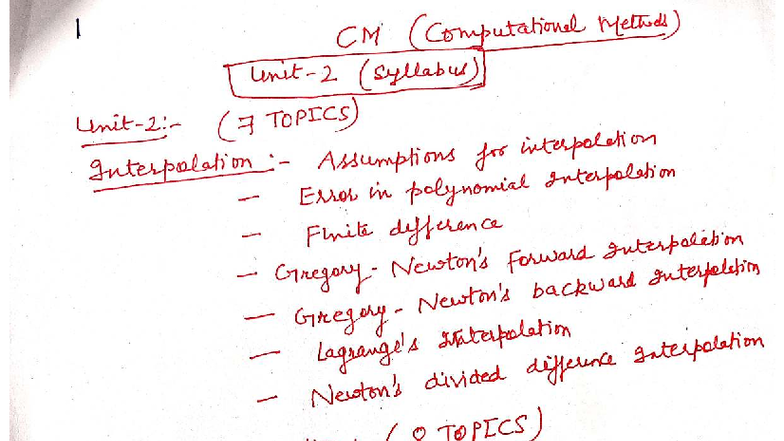 1
CM (Computational Methods)
Unit-2 (Syllabus)
Unit-2:- (7 TOPICS)
Interpolation:- Assumptions for interpolation
— Error in polynomial Interpolation
— Finite difference
— Gregory - Newton's Forward Interpolation
— Gregory - Newton's backward Interpolation
— Lagrange's Interpolation
— Newton's divided difference Interpolation
TOPICS)